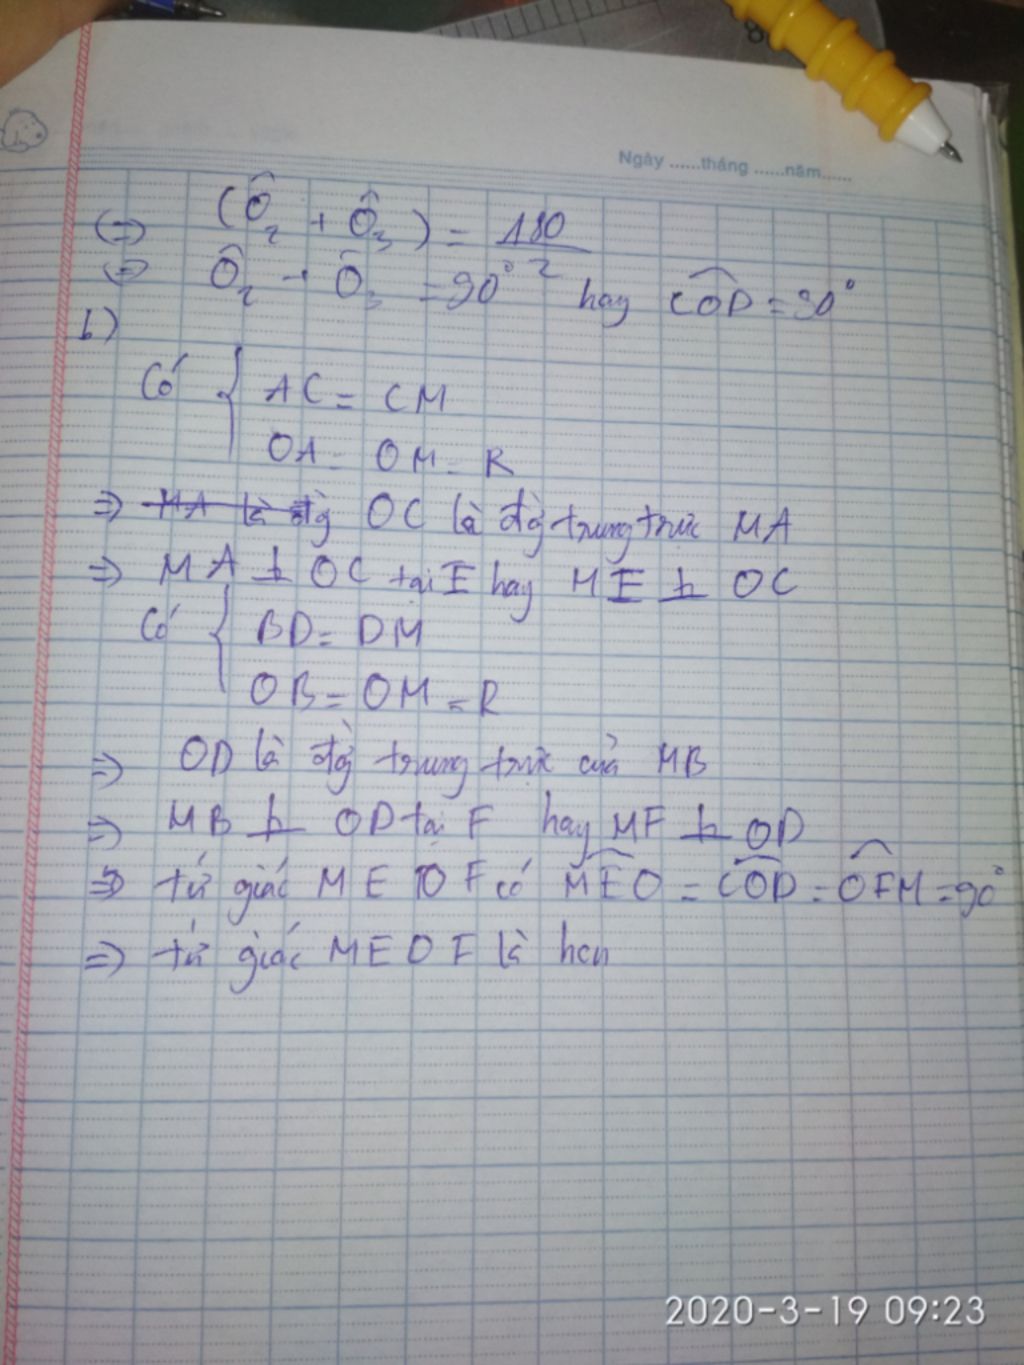 Ngày ......tháng ......năm......
(=) (Ô₂ + Ô₃) = 180/2
(=) Ô₂ + Ô₃ = 90° hay COD̂ = 90°
b)
Có { AC = CM
OA = OM = R
=> MA là đg OC là đg trung trực MA
=> MA ⊥ OC tại E hay ME ⊥ OC
Có { BD = DM
OB = OM = R
=> OD là đg trung trực của MB
=> MB ⊥ OD tại F hay MF ⊥ OD
=> tứ giác MEOF có MEÔ = COD̂ = OFM̂ = 90°
=> tứ giác MEOF là hcn
2020-3-19 09:23